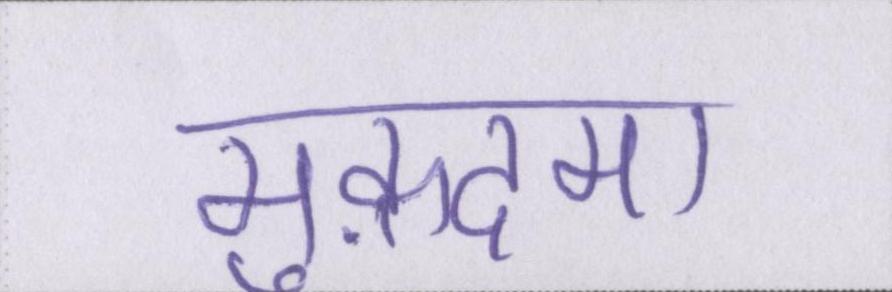 मुक़दमा